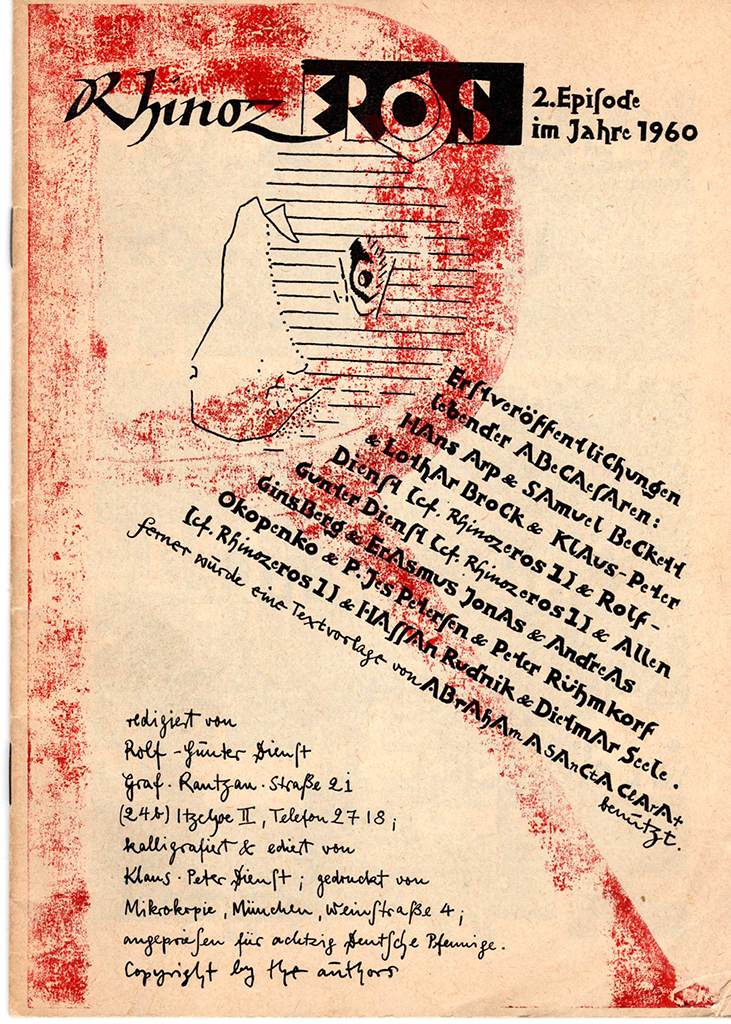 RhinozEROS
2. Episode
im Jahre 1960
Erstveröffentlichungen
lebender ABeCAesAren:
HAns Arp & SAmuel BeCkett
& LotHAr BroCk & KlAus-Peter
Dienst [cf. Rhinozeros 1] & Rolf-
Gunter Dienst [cf. Rhinozeros 1] & Allen
GinsBerg & ErAsmus JonAs & AndreAs
Okopenko & P. Jes Petersen & Peter Rühmkorf
[cf. Rhinozeros 1] & HAssAn Rudnik & DietmAr Seele.
ferner würde eine Textvorlage von ABrAhAm A SAnCtA ClArA+
benützt.
redigiert von
Rolf-Günter Dienst
Graf-Rantzau-Straße 21
(24b) Itzehoe II, Telefon 2718;
kalligrafiert & ediert von
Klaus-Peter Dienst; gedruckt von
Mikrokopie, München, Weinstraße 4;
angepriesen für achtzig Deutsche Pfennige.
Copyright by the authors